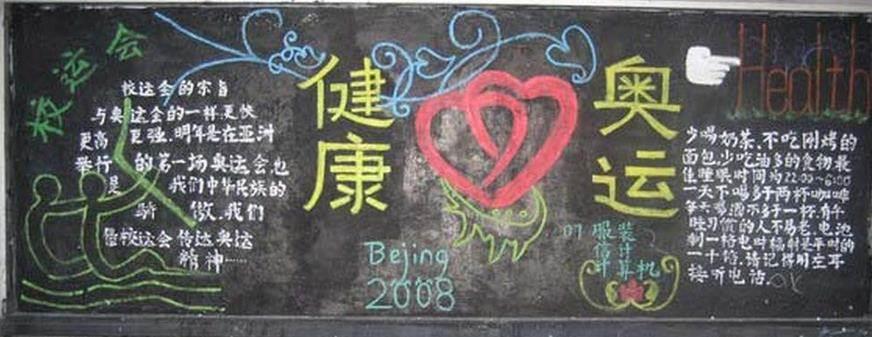 校运会
校运会的宗旨
与奥运会的一样.更快
更高 更强.明年是在亚洲
举行 的第一场奥运会也
是 我们中华民族的
骄 傲.我们
借校运会传达奥运
精神……
健康
奥运
Bejing
2008
07服装
信计
计算机
Health
少喝奶茶.不吃刚烤的
面包.少吃油多的食物.最
佳睡眠时间为22:00~6:00
一天不喝多于两杯咖啡
每天喝酒不多于一杯.有午
睡习惯的人不易老.电池
剩一格电时辐射是平时的
一千倍.请记得用左耳
接听电话.